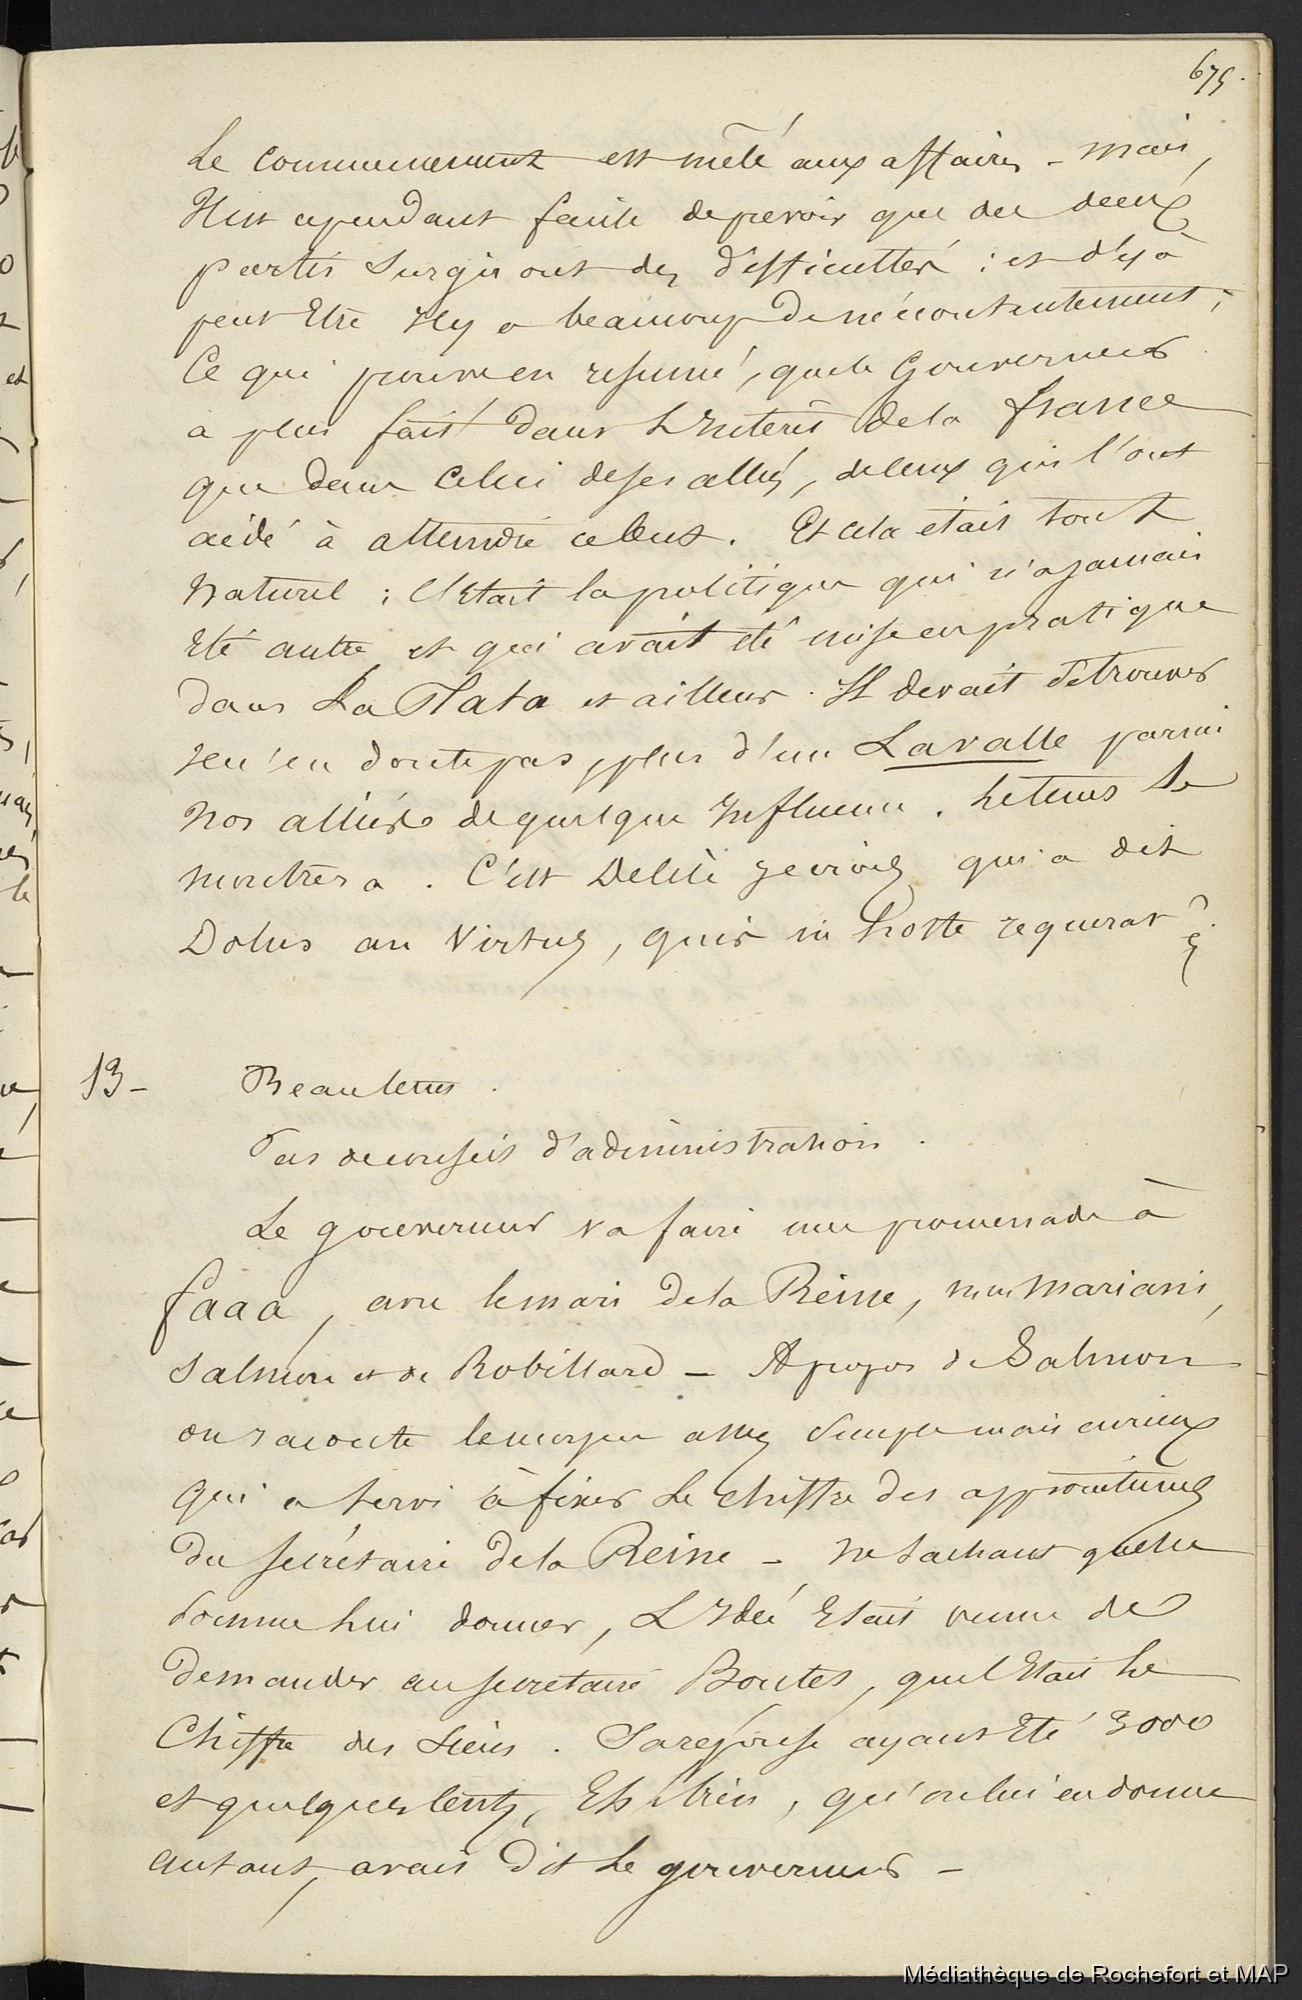 675.
Le commencement est mêlé aux affaires - mais,
Il est cependant facile de prevoir que des deux
partis surgiront des difficultés : et déjà
peut Etre Il y a beaucoup de mécontentement ;
Ce qui prouve en resumé, que le Gouverneur
a plus fait dans L'Interêt de la france
que dans Celui de ses alliés, de ceux qui l'ont
aidé à atteindre ce but. Et cela était tout
Naturel ; C'Etait la politique qui n'a jamais
Eté autre et qui avait été mise en pratique
dans La Plata et ailleurs. Il devait se trouver
Je n'en doute pas, plus d'un Lavalle parmi
nos alliés de quelque Influence. Le tems le
montrera. C'est Delile je crois qui a dit
Dolus an Virtus, quis in hoste requirat ?
13 - Beau tems.
Pas de conseil d'administration.
Le gouverneur va faire une promenade à
faaa, avec le mari de la Reine, mm Mariani,
Salmon et de Robillard - A propos de Salmon
on raconte le moyen assez simple mais curieux
qui a servi à fixer Le chiffre des appointemens
du secrétaire de la Reine - ne sachant quelle
somme lui donner, L'Idée Etait venue de
demander au secretaire Boutet, quel Etait le
Chiffre des siens. Sa réponse ayant Eté 3000
et quelques cents, Eh bien, qu'on lui en donne
autant, avait dit Le gouverneur -
Médiathèque de Rochefort et MAP